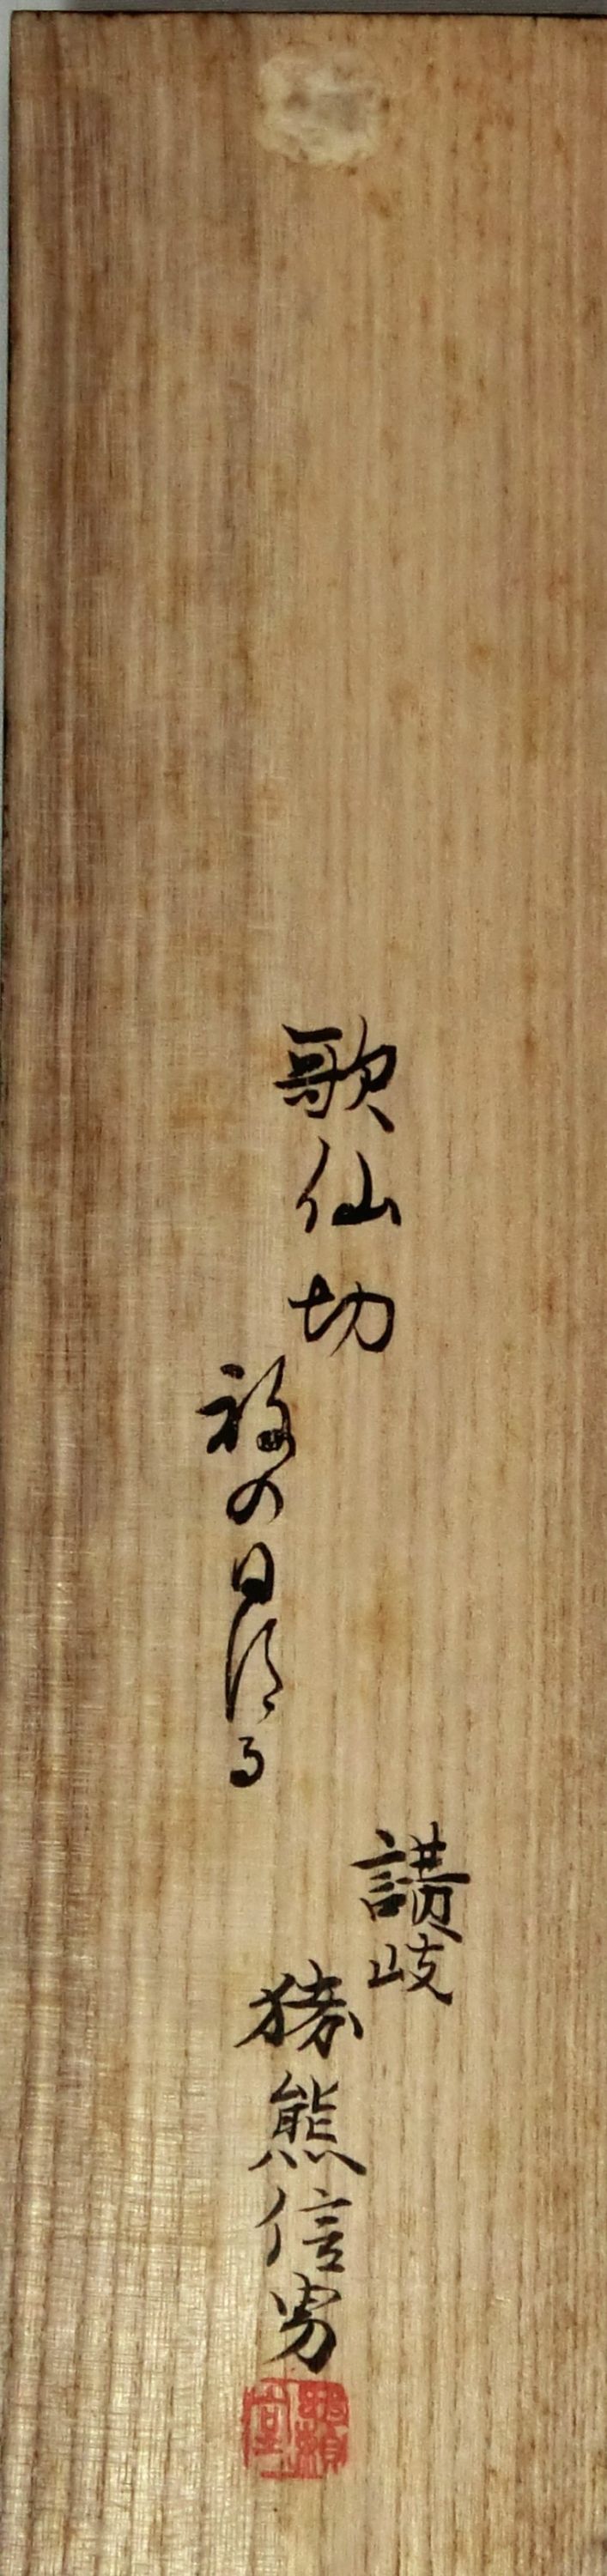 歌仙切
祓の日する
讃岐
猪熊信男